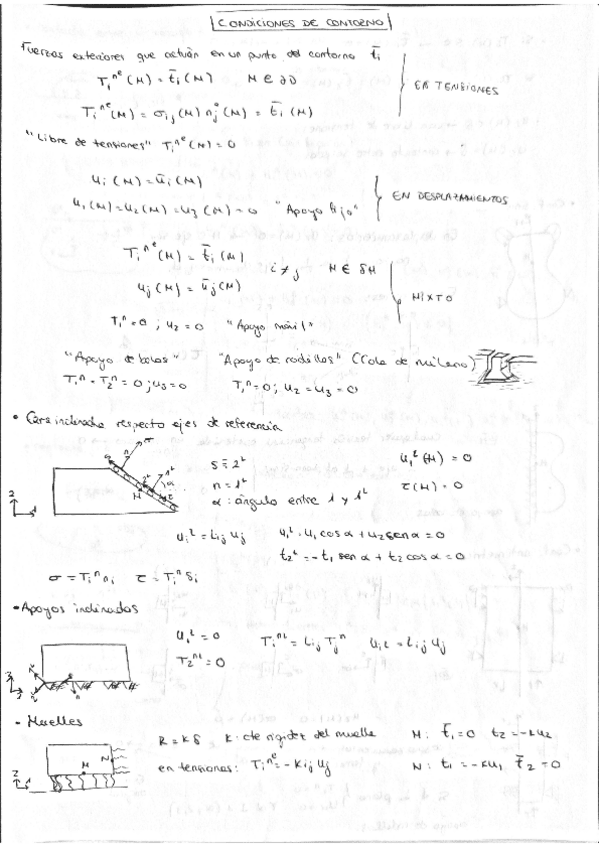 CONDICIONES DE CONTORNO
Fuerzas exteriores que actúan en un punto del contorno t̄i
Ti^ne (M) = t̄i (M)   M ∈ ∂D
Ti^ne (M) = σij (M) nj^e (M) = t̄i (M)
EN TENSIONES
"Libre de tensiones" Ti^ne (M) = 0
ui (M) = ūi (M)
u1 (M) = u2 (M) = u3 (M) = 0   "Apoyo fijo"
EN DESPLAZAMIENTOS
Ti^ne (M) = t̄i (M)
i ≠ j   M ∈ δM
uj (M) = ūj (M)
MIXTO
T1^n = 0 ; u2 = 0   "Apoyo móvil"
"Apoyo de bolas"   "Apoyo de rodillos" (Cola de milano)
T1^n = T2^n = 0 ; u3 = 0   T1^n = 0 ; u2 = u3 = 0
• Cara inclinada respecto ejes de referencia
s = 2^L   u1^L (M) = 0
n = 1^L   τ (M) = 0
α : ángulo entre 1 y 1^L
ui^L = Lij uj   u1^L = u1 cos α + u2 sen α = 0
t2^L = -t1 sen α + t2 cos α = 0
σ = Ti^n ni   τ = Ti^n si
• Apoyos inclinados
u1^L = 0   Ti^nL = Lij Tj^n   ui^L = Lij uj
T2^nL = 0
- Muelles
R = Kδ   K: cte rigidez del muelle   M: t̄1 = 0   t2 = -Ku2
en tensiones: Ti^ne = -Kij uj   N: t1 = -Ku1   t̄2 = 0